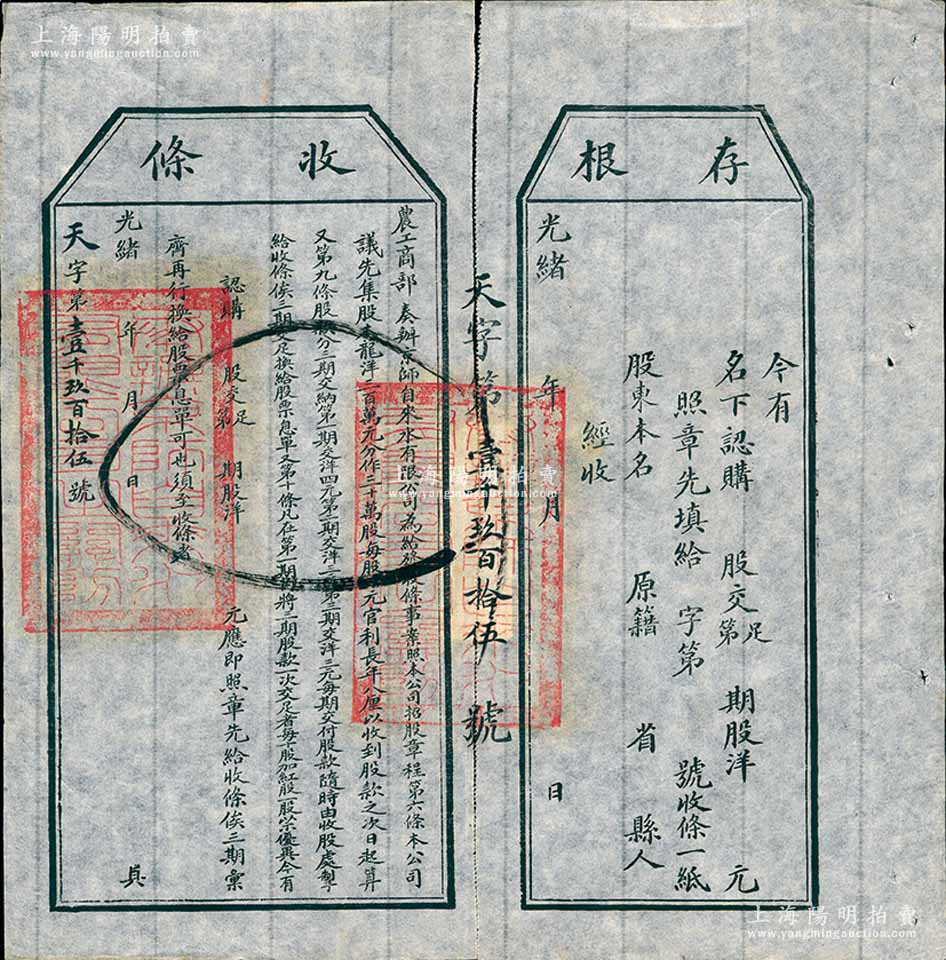 上海陽明拍賣
www.yangmingauction.com
存根
今有
名下認購 股交足第 期股洋 元
照章先填給 字第 號收條一紙
股東本名 原籍 省 縣人
經收
光緒 年 月 日
天字第壹千玖百拾伍號
收條
農工商部 奏辦京師自來水有限公司為給發收條事案照本公司招股章程第六條本公司
議先集股本龍洋三百萬元分作三十萬股每股十元官利長年八厘以收到股款之次日起算
又第九條股款分三期交納第一期交洋四元第二期交洋三元第三期交洋三元每期交付股款隨時由收股處掣
給收條俟三期交足換給股票息單又第十條凡在第一期內將三期股款一次交足者每十股加紅股一股以示優異今有
認購 股交足第 期股洋 元應即照章先給收條俟三期彙
齊再行換給股票息單可也須至收條者
光緒 年 月 日 具
天字第壹千玖百拾伍號
上海陽明拍賣
www.yangmingauction.com
上海陽明拍賣
www.yangmingauction.com